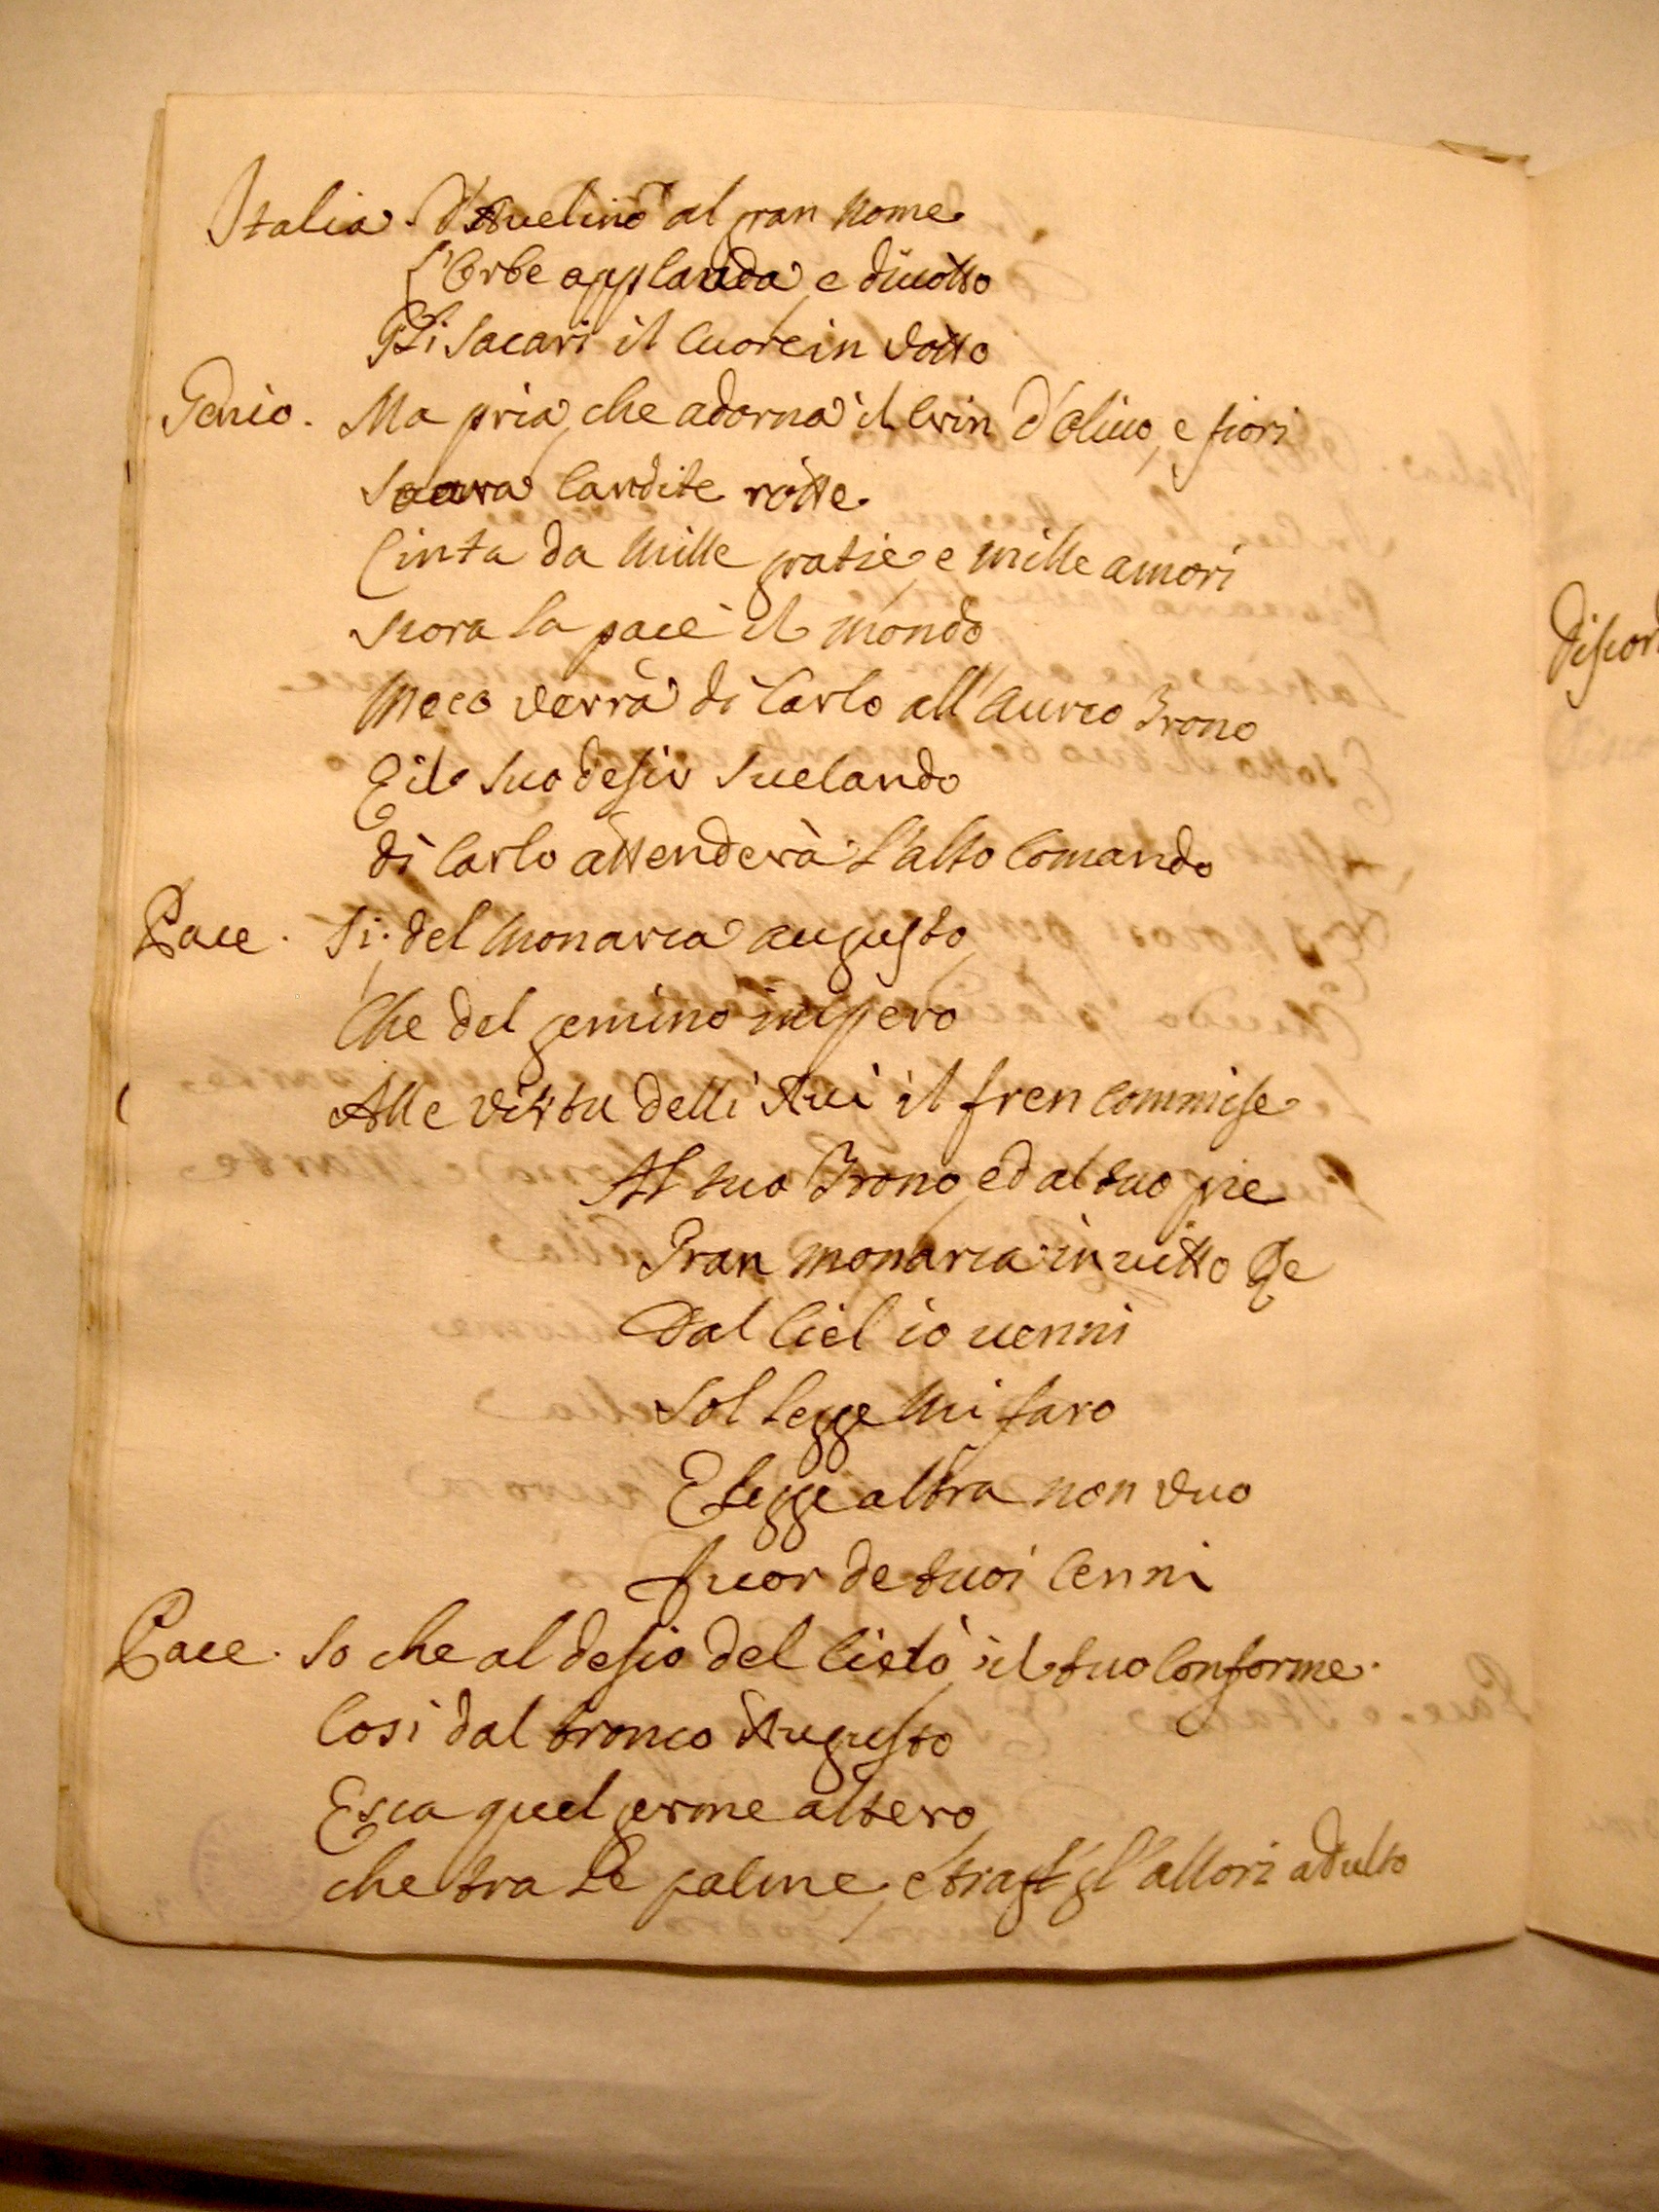 Italia. D'Auelino al gran nome
L'Orbe applauda, e diuotto
Gli sacari il cuore in votto
Genio. Ma pria, che adorna il crin d'oliuo, e fiori
Scorra l'ardite rotte
Cinta da mille gratie, e mille amori
Scora la pace il mondo
Meco verrà di Carlo all'Aureo Trono
E il suo desir suelando
di Carlo attenderà l'alto Comando
Pace. Si, del Monarca augusto
Che del gemino impero
Alle virtu delli Aui il fren commise
Al tuo Trono, ed al tuo pie
Gran monarca inuitto Re
Dal Ciel io uenni
Sol legge mi faro
E legge altra non vuo
fuor de tuoi Cenni
Pace. So che al desio del Cielo, il tuo Conforme
Cosi dal tronco Augusto
Esca quel germe altero
che tra le palme, e tra gl'allori adulto
Discor